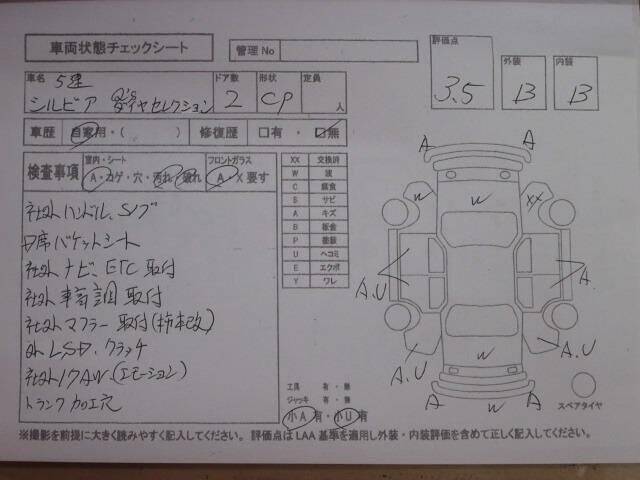 車両状態チェックシート
管理No
評価点
3.5
外装
B
内装
B
車名 5速
シルビア Q's ダイヤセレクション
ドア数
2
形状
CP
定員
人
車歴 自家用・( ) 修復歴 口有・口無
検査事項
室内・シート
A・コゲ・穴・汚れ・破れ
フロントガラス
A・X要す
XX 交換済
W 波
C 腐食
S サビ
A キズ
B 板金
P 塗装
U ヘコミ
E エクボ
Y ワレ
社外ハンドル、S/ブ
D席バケットシート
社外ナビ、ETC取付
社外車高調取付
社外マフラー取付(柿本改)
社外LSD、クラッチ
社外17AW(エモーション)
トランクカロエ穴
工具 有・無
ジャッキ 有・無
小A有・小U有
A
A
W
W
XX
A.U
A.
A.U
A.U
W
A
W
A
スペアタイヤ
※撮影を前提に大きく読みやすく記入してください。 評価点はLAA基準を適用し外装・内装評価を含めて正しく記入ください。